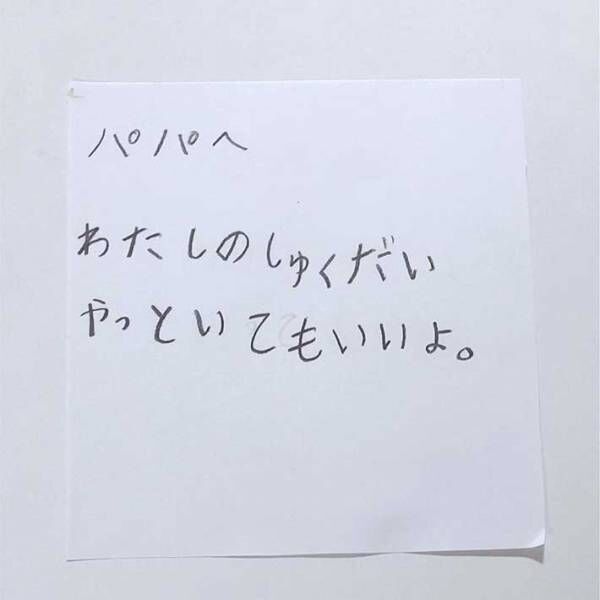 パパへ
わたしのしゅくだい
やっといてもいいよ。